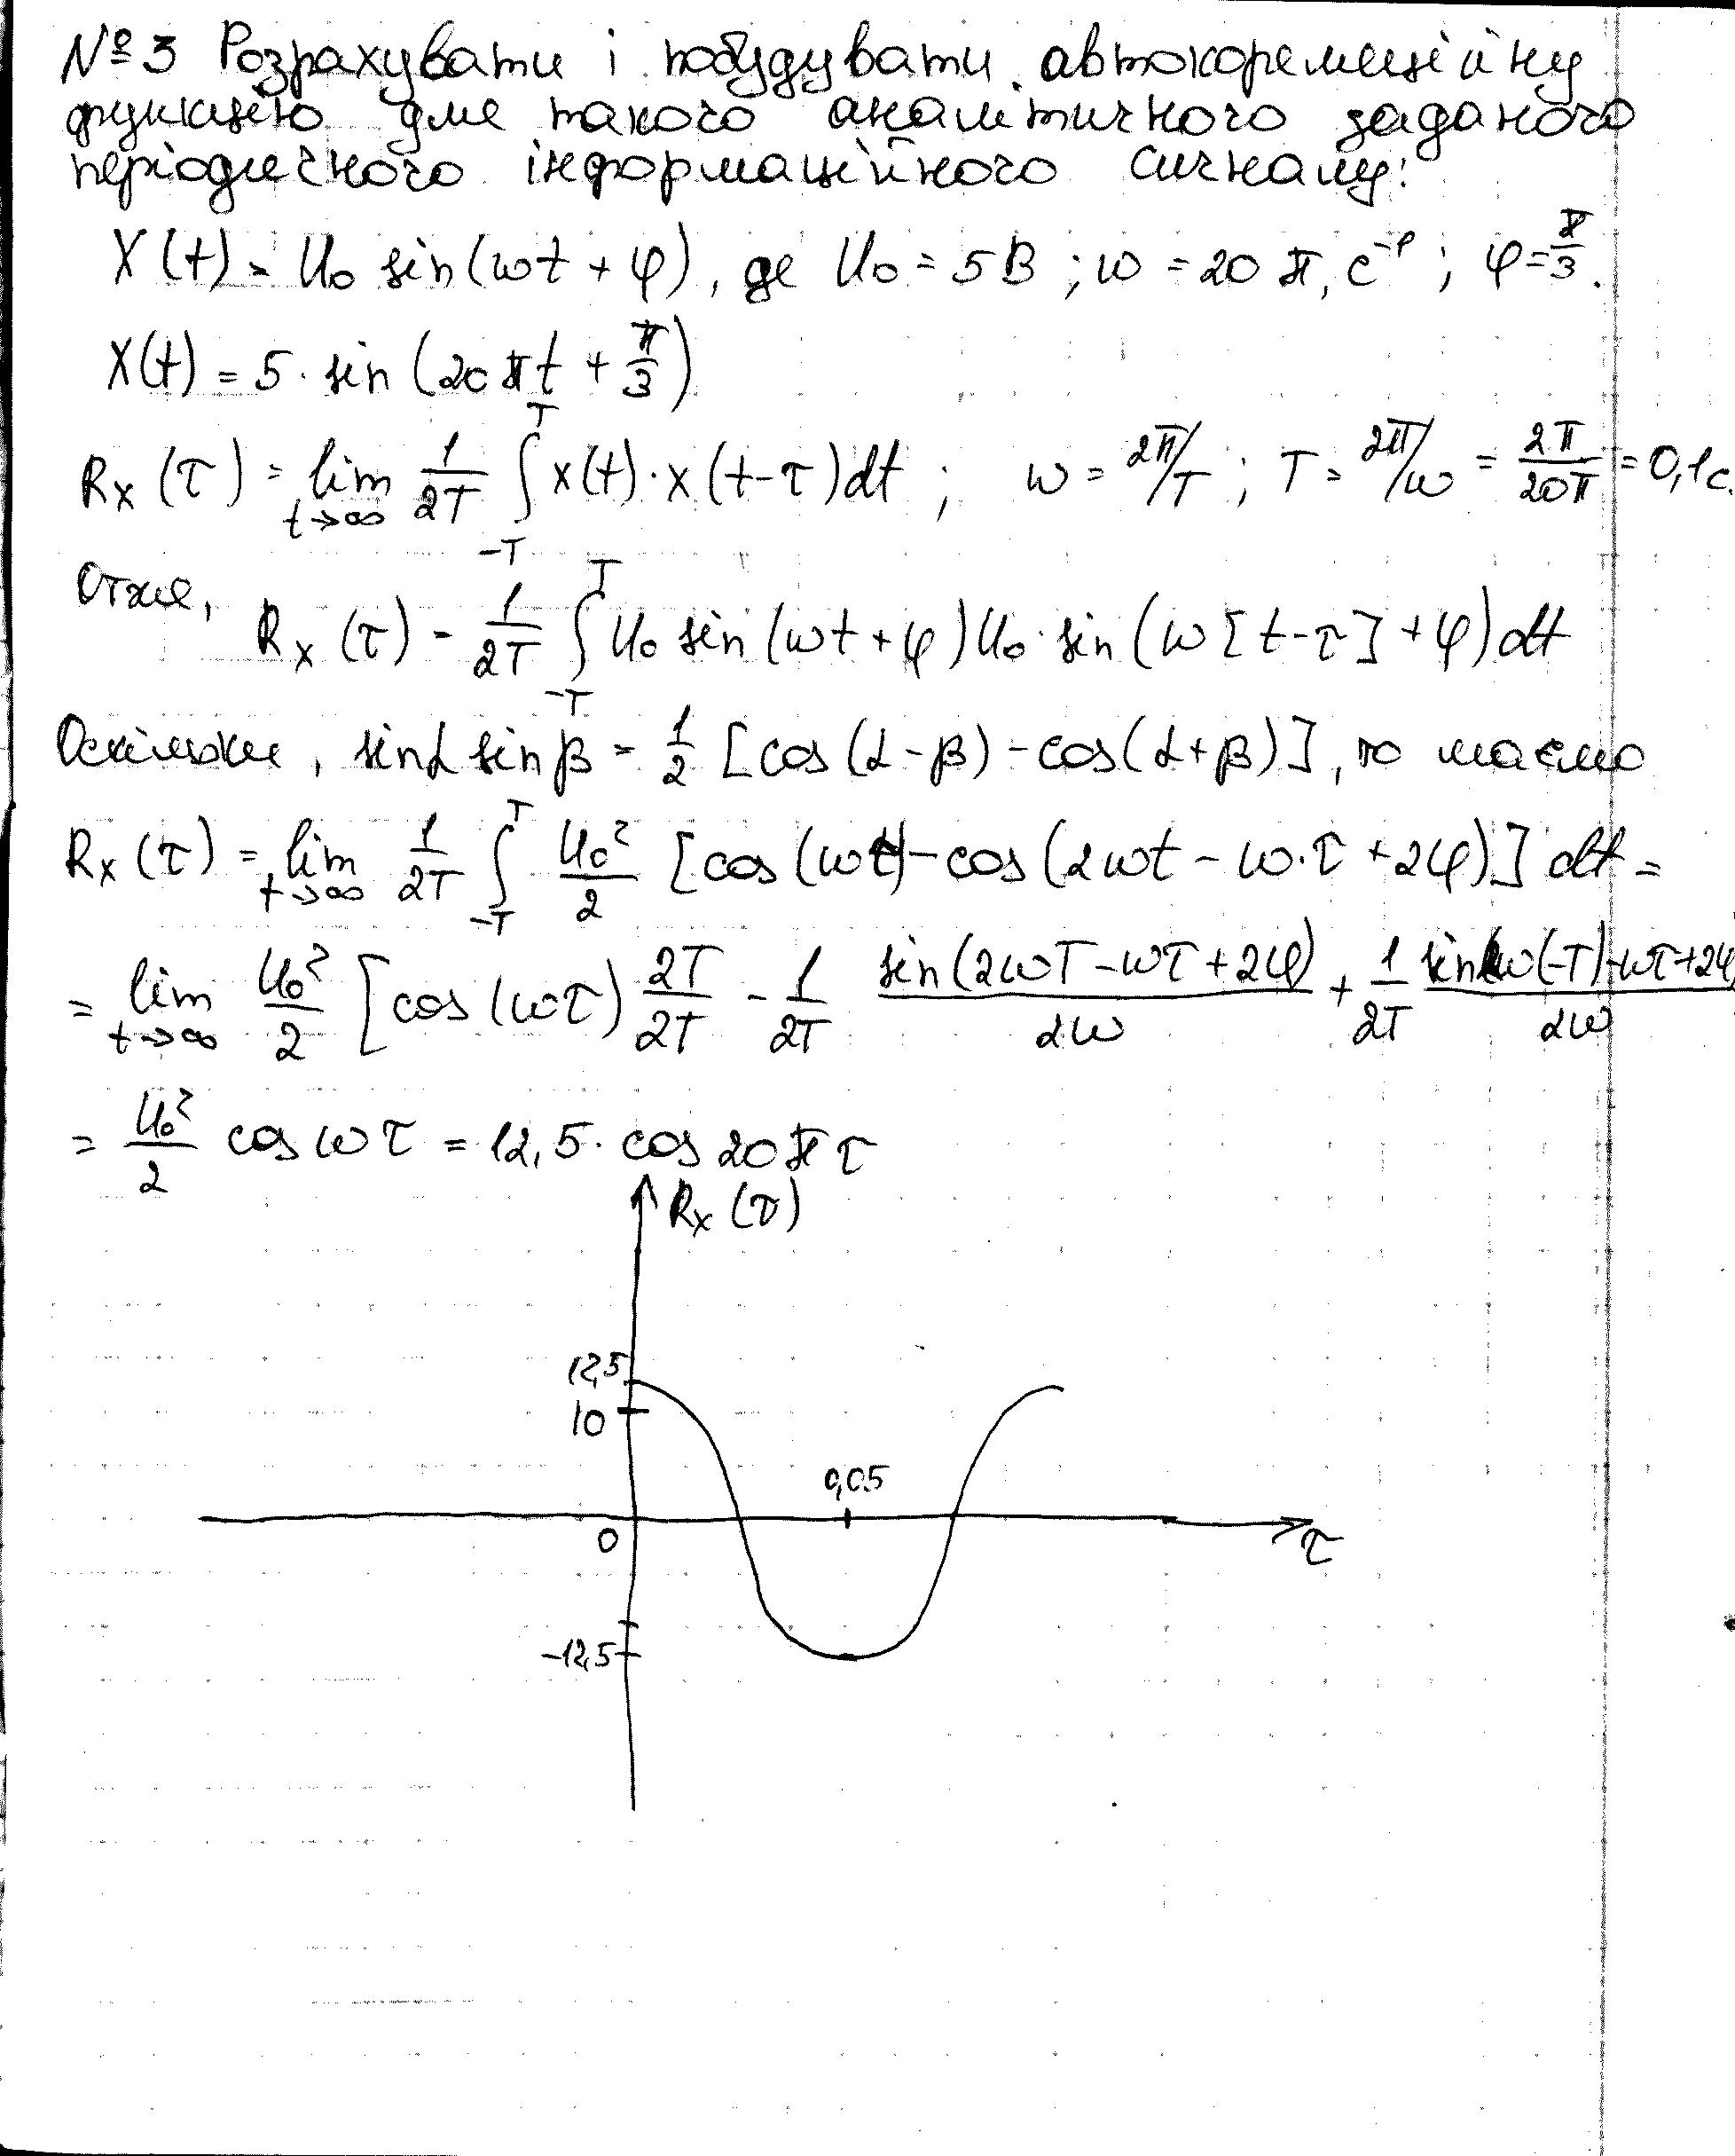 №3 Розрахувати і побудувати автокореляційну
функцію для такого аналітичного заданого
періодичного інформаційного сигналу:
X(t) = U₀ sin(ωt + φ), де U₀ = 5В ; ω = 20 π, с⁻¹ ; φ = π/3.
X(t) = 5 · sin(20πt + π/3)
Rx(τ) = lim t→∞ 1/2T ∫_{-T}^{T} x(t)·x(t-τ)dt ; ω = 2π/T ; T = 2π/ω = 2π/20π = 0,1с.
Отже,
Rx(τ) = 1/2T ∫_{-T}^{T} U₀ sin(ωt + φ) U₀· sin(ω[t-τ] + φ)dt
Оскільки, sinα sinβ = 1/2 [cos(α-β) - cos(α+β)], то маємо
Rx(τ) = lim t→∞ 1/2T ∫_{-T}^{T} U₀²/2 [cos(ωτ) - cos(2ωt - ω·τ + 2φ)] dt =
= lim t→∞ U₀²/2 [cos(ωτ) 2T/2T - 1/2T sin(2ωT - ωτ + 2φ)/2ω + 1/2T sin(2ω(-T) - ωτ + 2φ)/2ω
= U₀²/2 cos ωτ = 12,5 · cos 20πτ
Rx(τ)
12,5
10
0,05
0
τ
-12,5